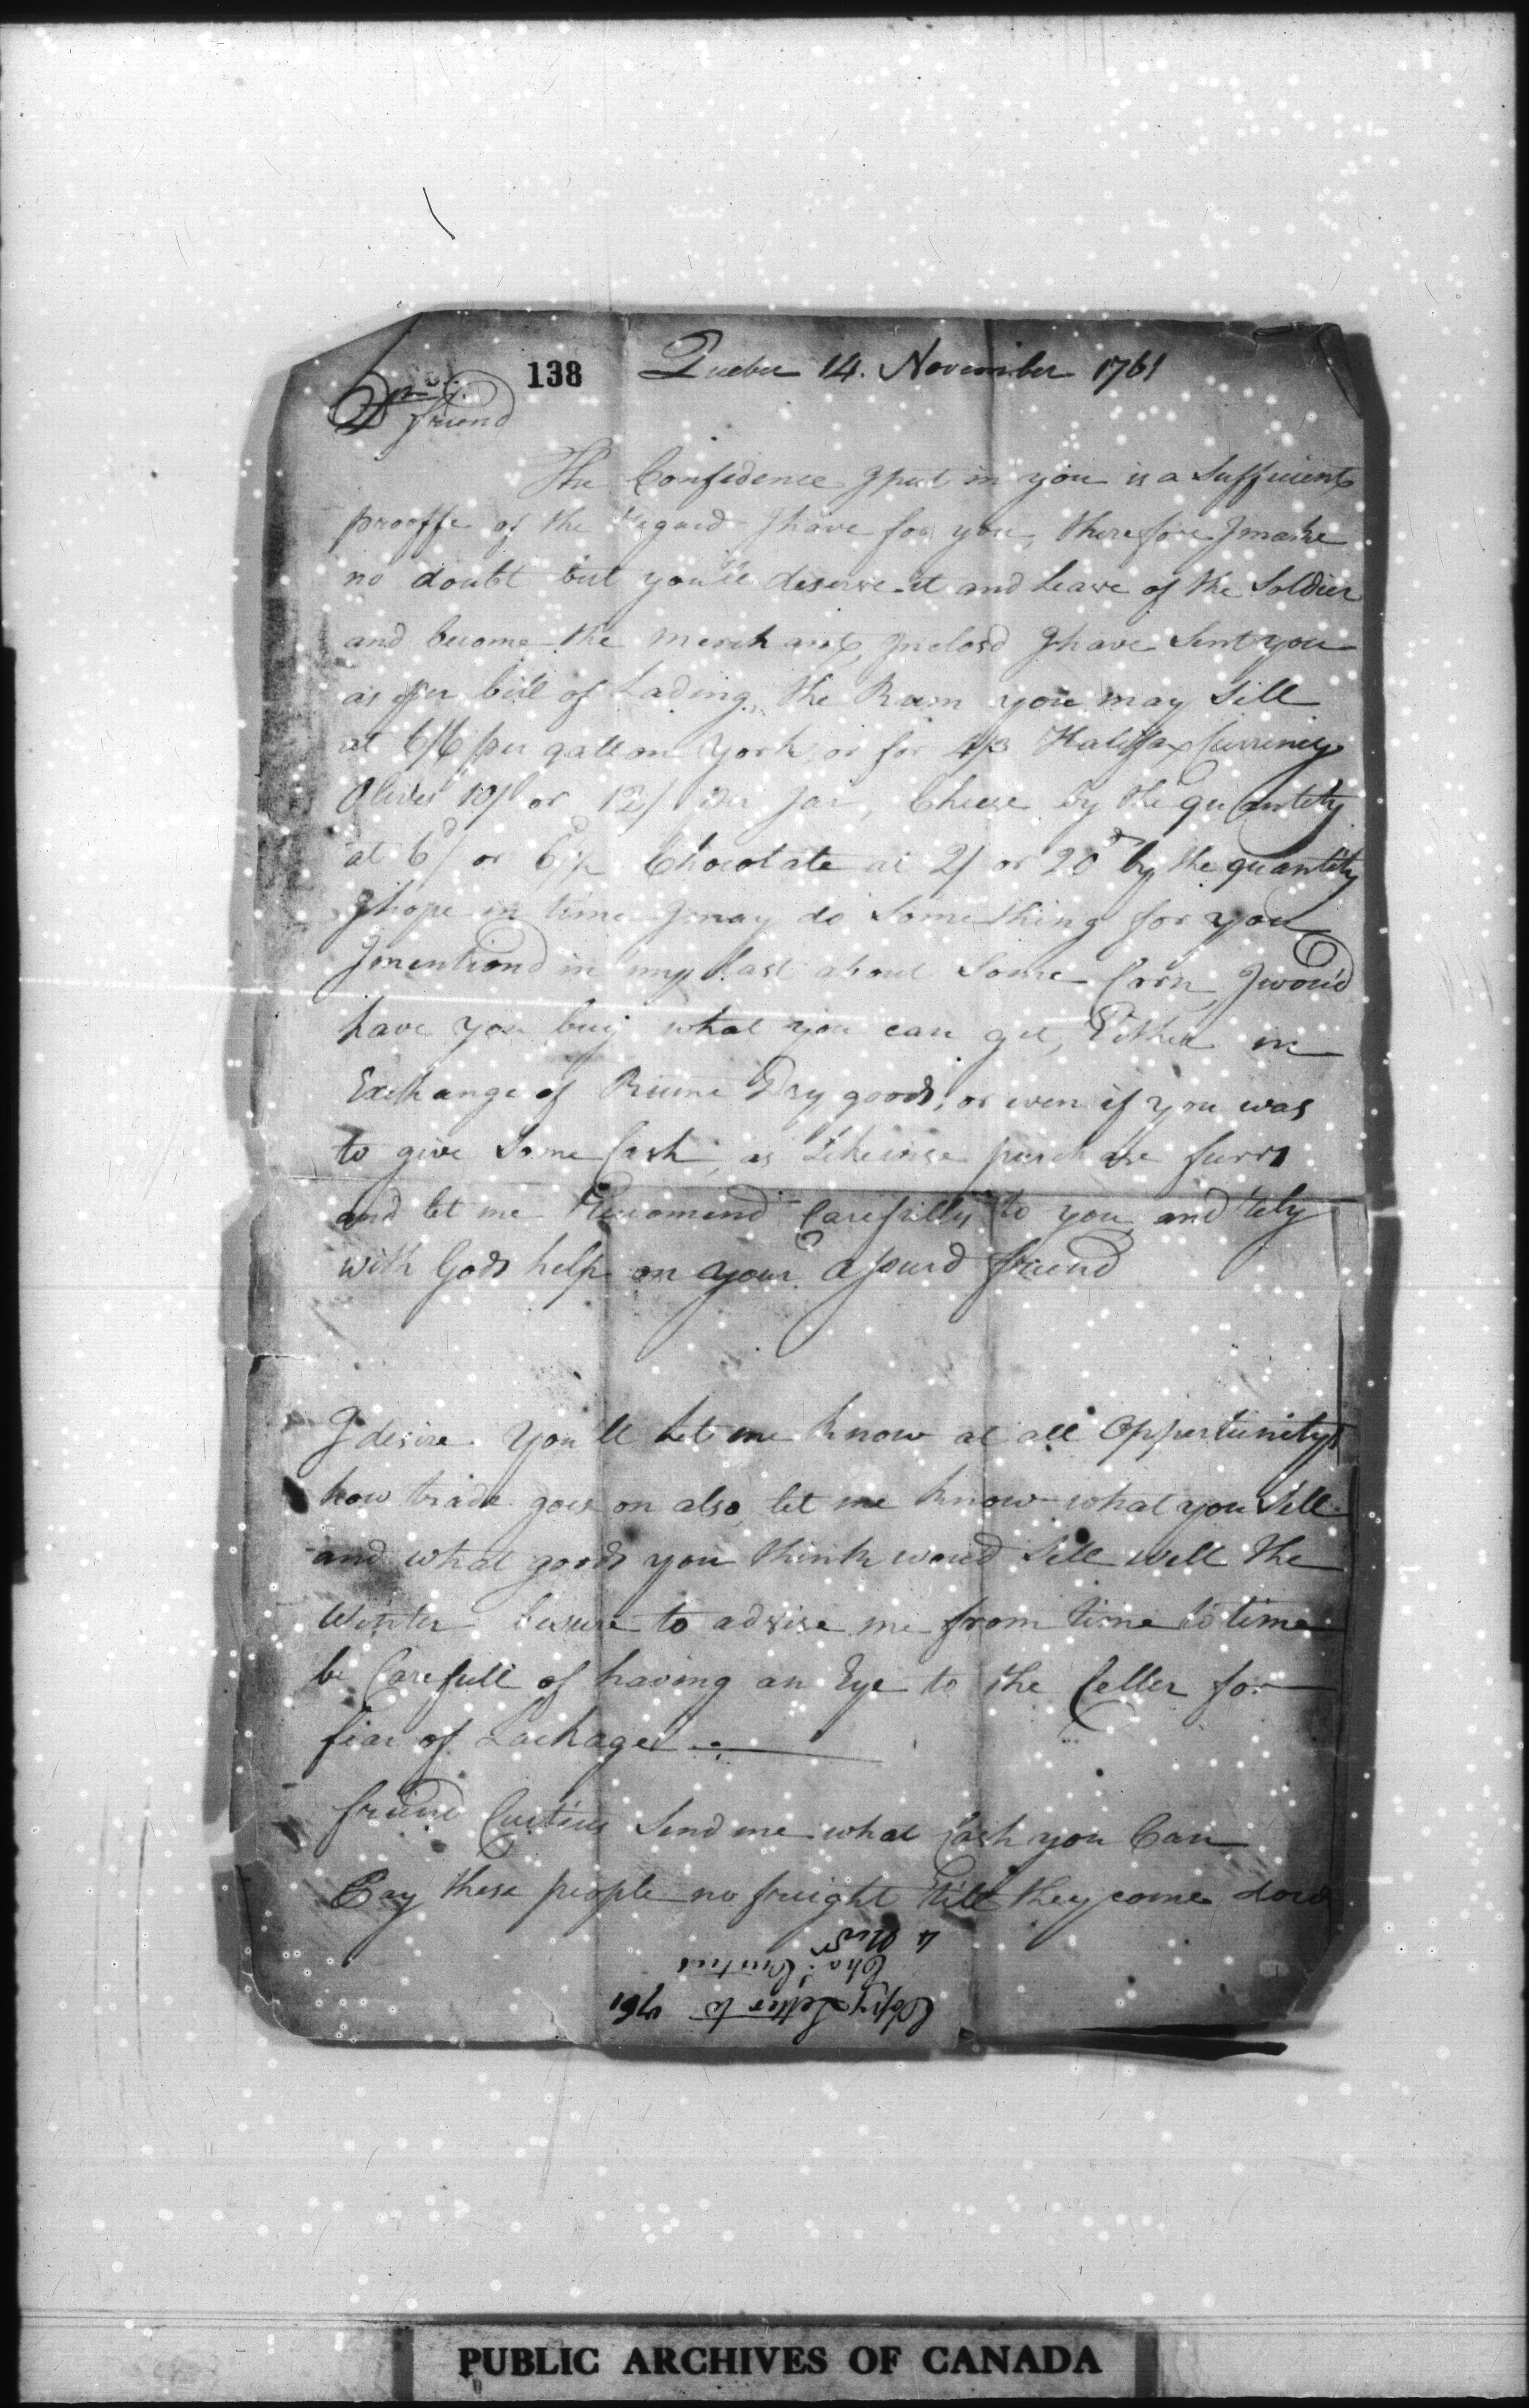 138 Quebec 14. November 1761
Dr friend
The Confidence I put in you is a Sufficient
prooffe of the regard I have for you, therefore I make
no doubt but you'll deserve it and Leave of the Soldier
and become the merchant, Inclosd I have Sent you
as per bill of Lading, the Rum you may Sell
at 6/6 per gallon York, or for 4/3 Halifax Currency
Olives 10/ or 12/ per Jar, Cheese by the quantity
at 6d/ or Chocolate at 2/ or 20d by the quantity
I hope in time I may do Something for you
I mentiond in my Last about Some Corn, I wou'd
have you buy what you can get, Either in
Exchange of Rume Dry goods, or even if you was
to give Some Cash, as Likewise purchase furrs
and let me Recomend Carefully to you and rely
with Gods help on your assurd friend
I desire You'll Let me know at all Oppertunitys
how trade goes on also, let me know what you Sell
and what goods you think woud Sell well the
Winter besure to advise me from time to time
be Carefull of having an Eye to the Celler for
fear of Leakage
friend Curtius Send me what Cash you Can
Pay these people no freight till they come down
Copy Letter to 1761
Cha: Curtius
4 Novr
PUBLIC ARCHIVES OF CANADA